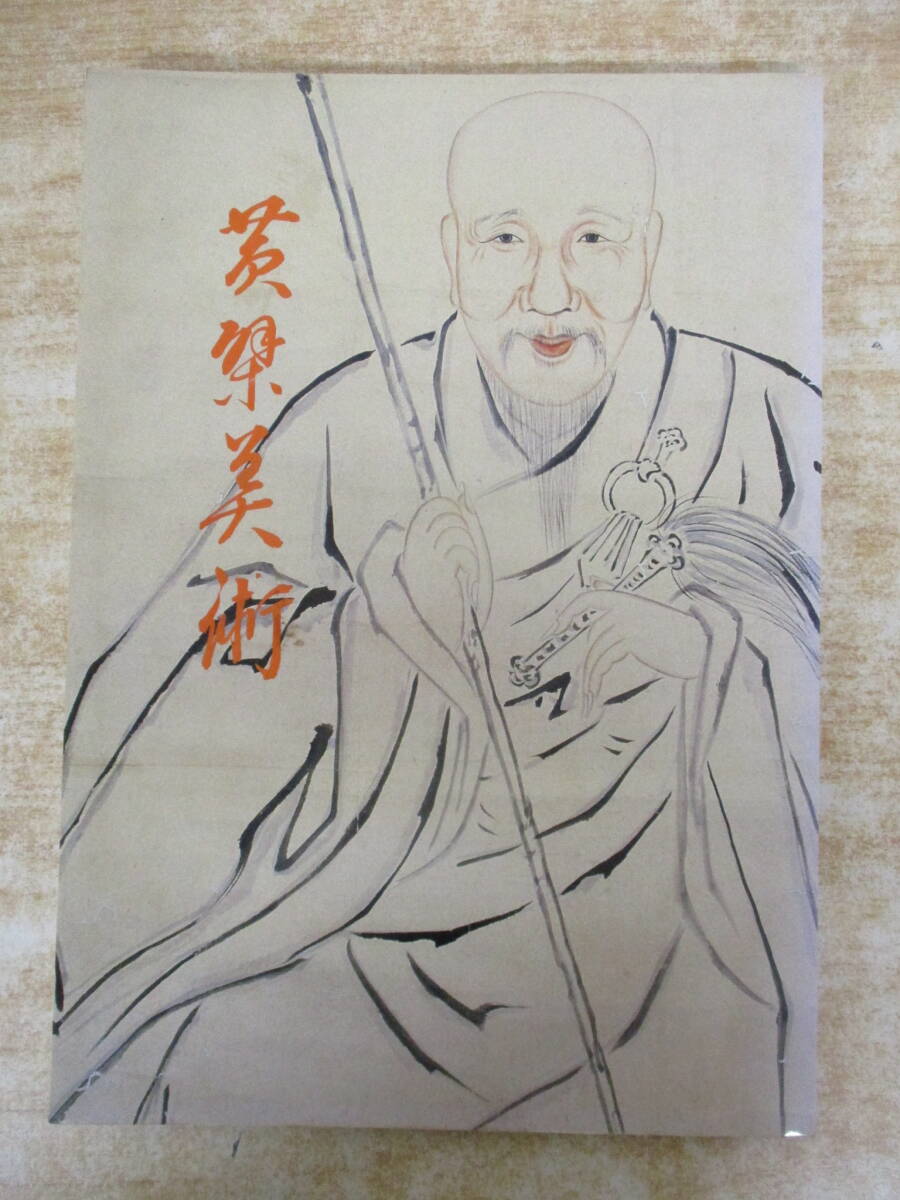 黄檗美術